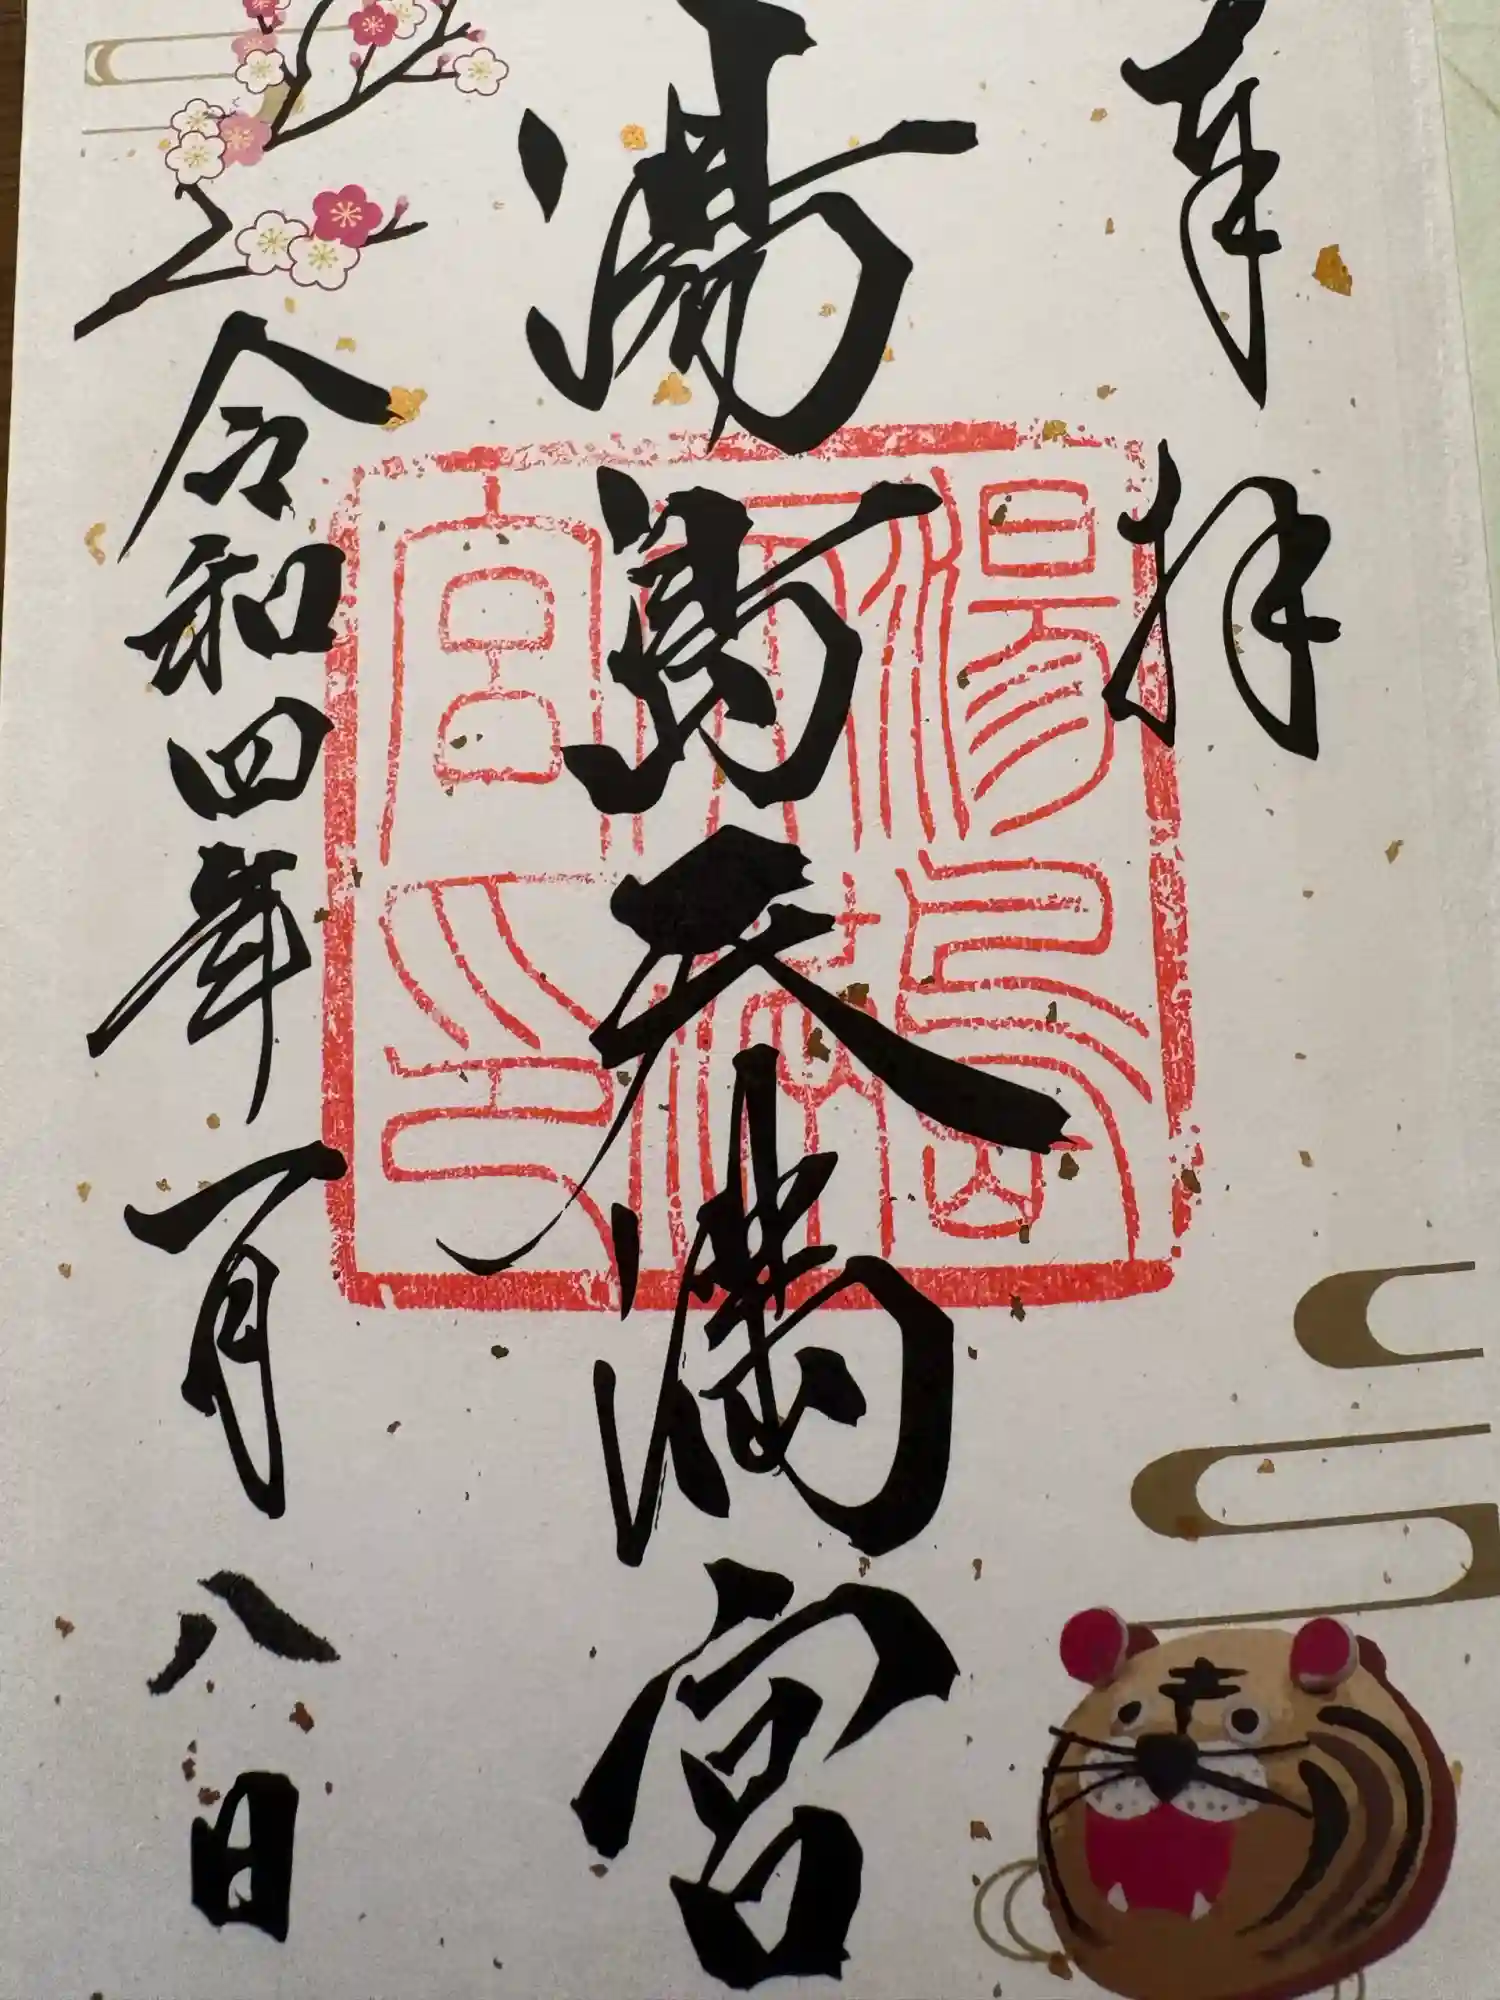 奉拝
湯島天満宮
湯島天満宮之印
令和四年一月八日